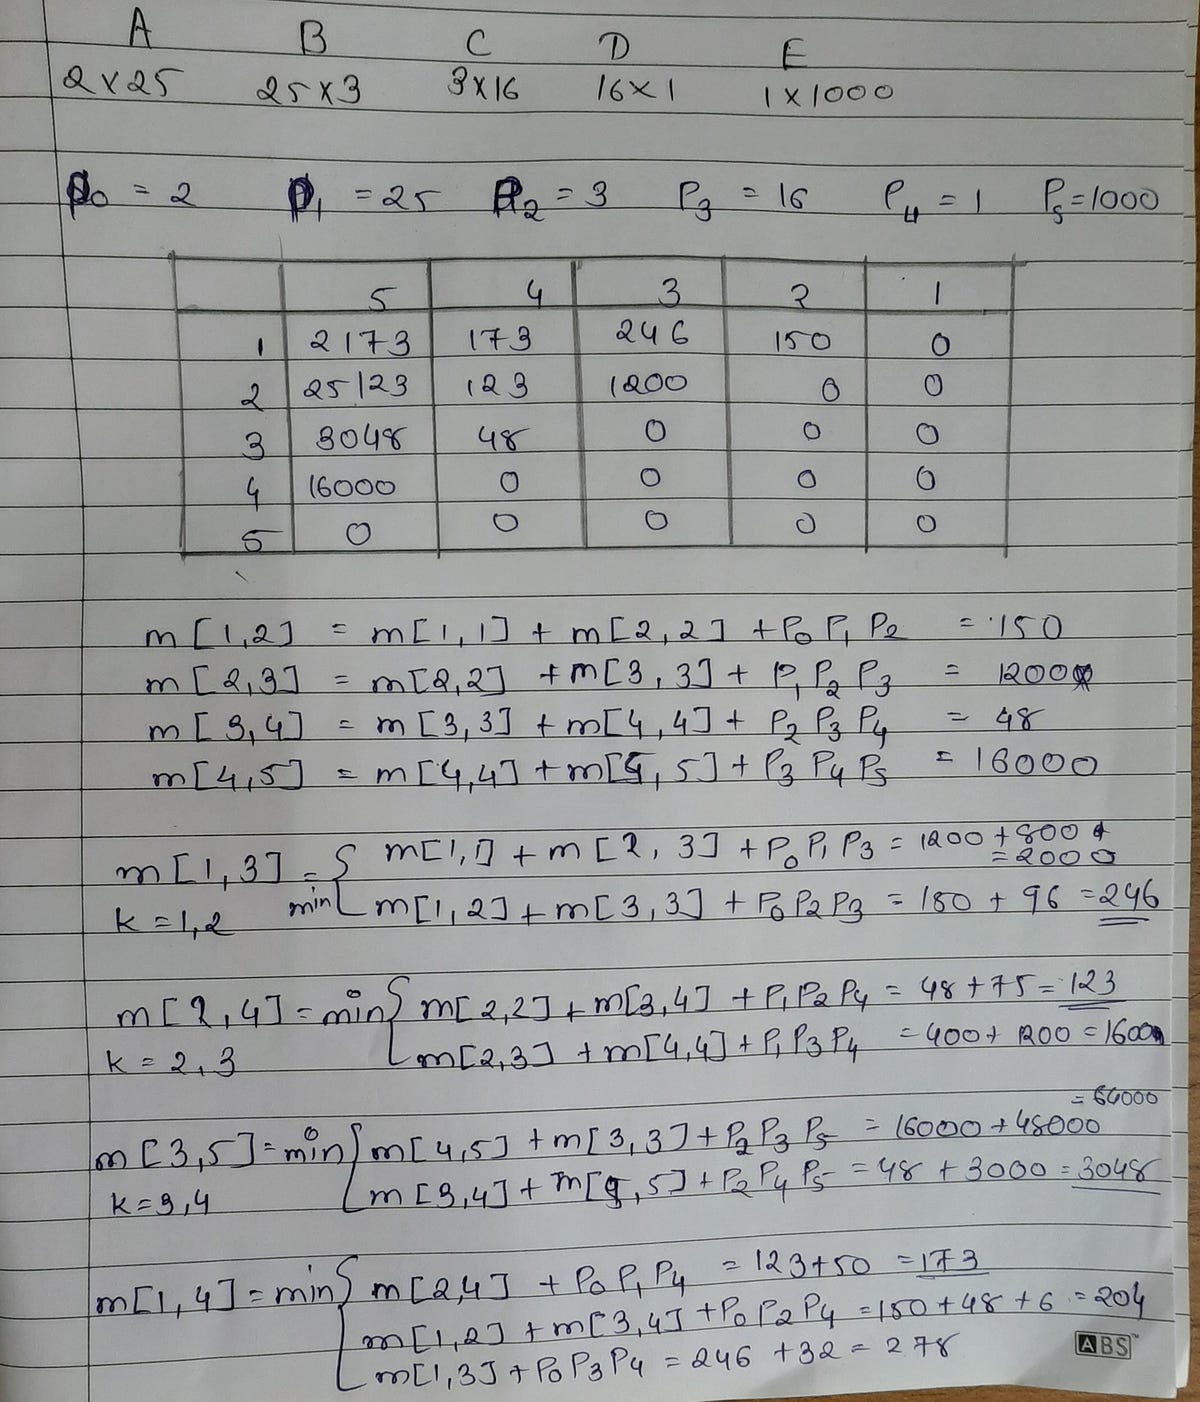 A B C D E
2 x 25 25 x 3 3 x 16 16 x 1 1 x 1000
P0 = 2 P1 = 25 P2 = 3 P3 = 16 P4 = 1 P5 = 1000
5 4 3 2 1
1 2173 173 246 150 0
2 25123 123 1200 0 0
3 3048 48 0 0 0
4 16000 0 0 0 0
5 0 0 0 0 0
m[1,2] = m[1,1] + m[2,2] + P0 P1 P2 = 150
m[2,3] = m[2,2] + m[3,3] + P1 P2 P3 = 1200
m[3,4] = m[3,3] + m[4,4] + P2 P3 P4 = 48
m[4,5] = m[4,4] + m[5,5] + P3 P4 P5 = 16000
m[1,3] = min { m[1,1] + m[2,3] + P0 P1 P3 = 1200 + 800
= 2000
k = 1,2 m[1,2] + m[3,3] + P0 P2 P3 = 150 + 96 = 246
m[2,4] = min { m[2,2] + m[3,4] + P1 P2 P4 = 48 + 75 = 123
k = 2,3 m[2,3] + m[4,4] + P1 P3 P4 = 400 + 1200 = 1600
= 64000
m[3,5] = min { m[4,5] + m[3,3] + P2 P3 P5 = 16000 + 48000
k = 3,4 m[3,4] + m[5,5] + P2 P4 P5 = 48 + 3000 = 3048
m[1,4] = min { m[2,4] + P0 P1 P4 = 123 + 50 = 173
m[1,2] + m[3,4] + P0 P2 P4 = 150 + 48 + 6 = 204
m[1,3] + P0 P3 P4 = 246 + 32 = 278
ABS™